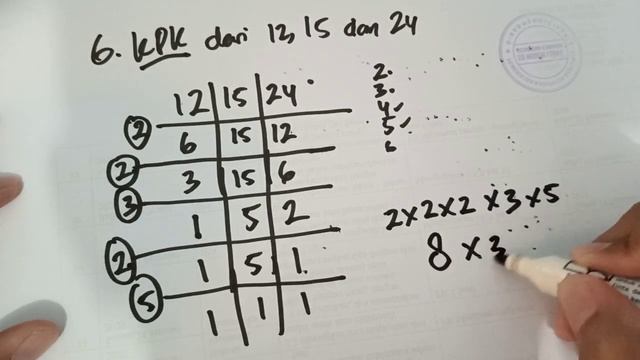 6. KPK dari 12, 15 dan 24
12 | 15 | 24
2 6 | 15 | 12
2 3 | 15 | 6
3 1 | 5 | 2
2 1 | 5 | 1
5 1 | 1 | 1
2.
3.
4
5
6
2×2×2×3×5
8×3